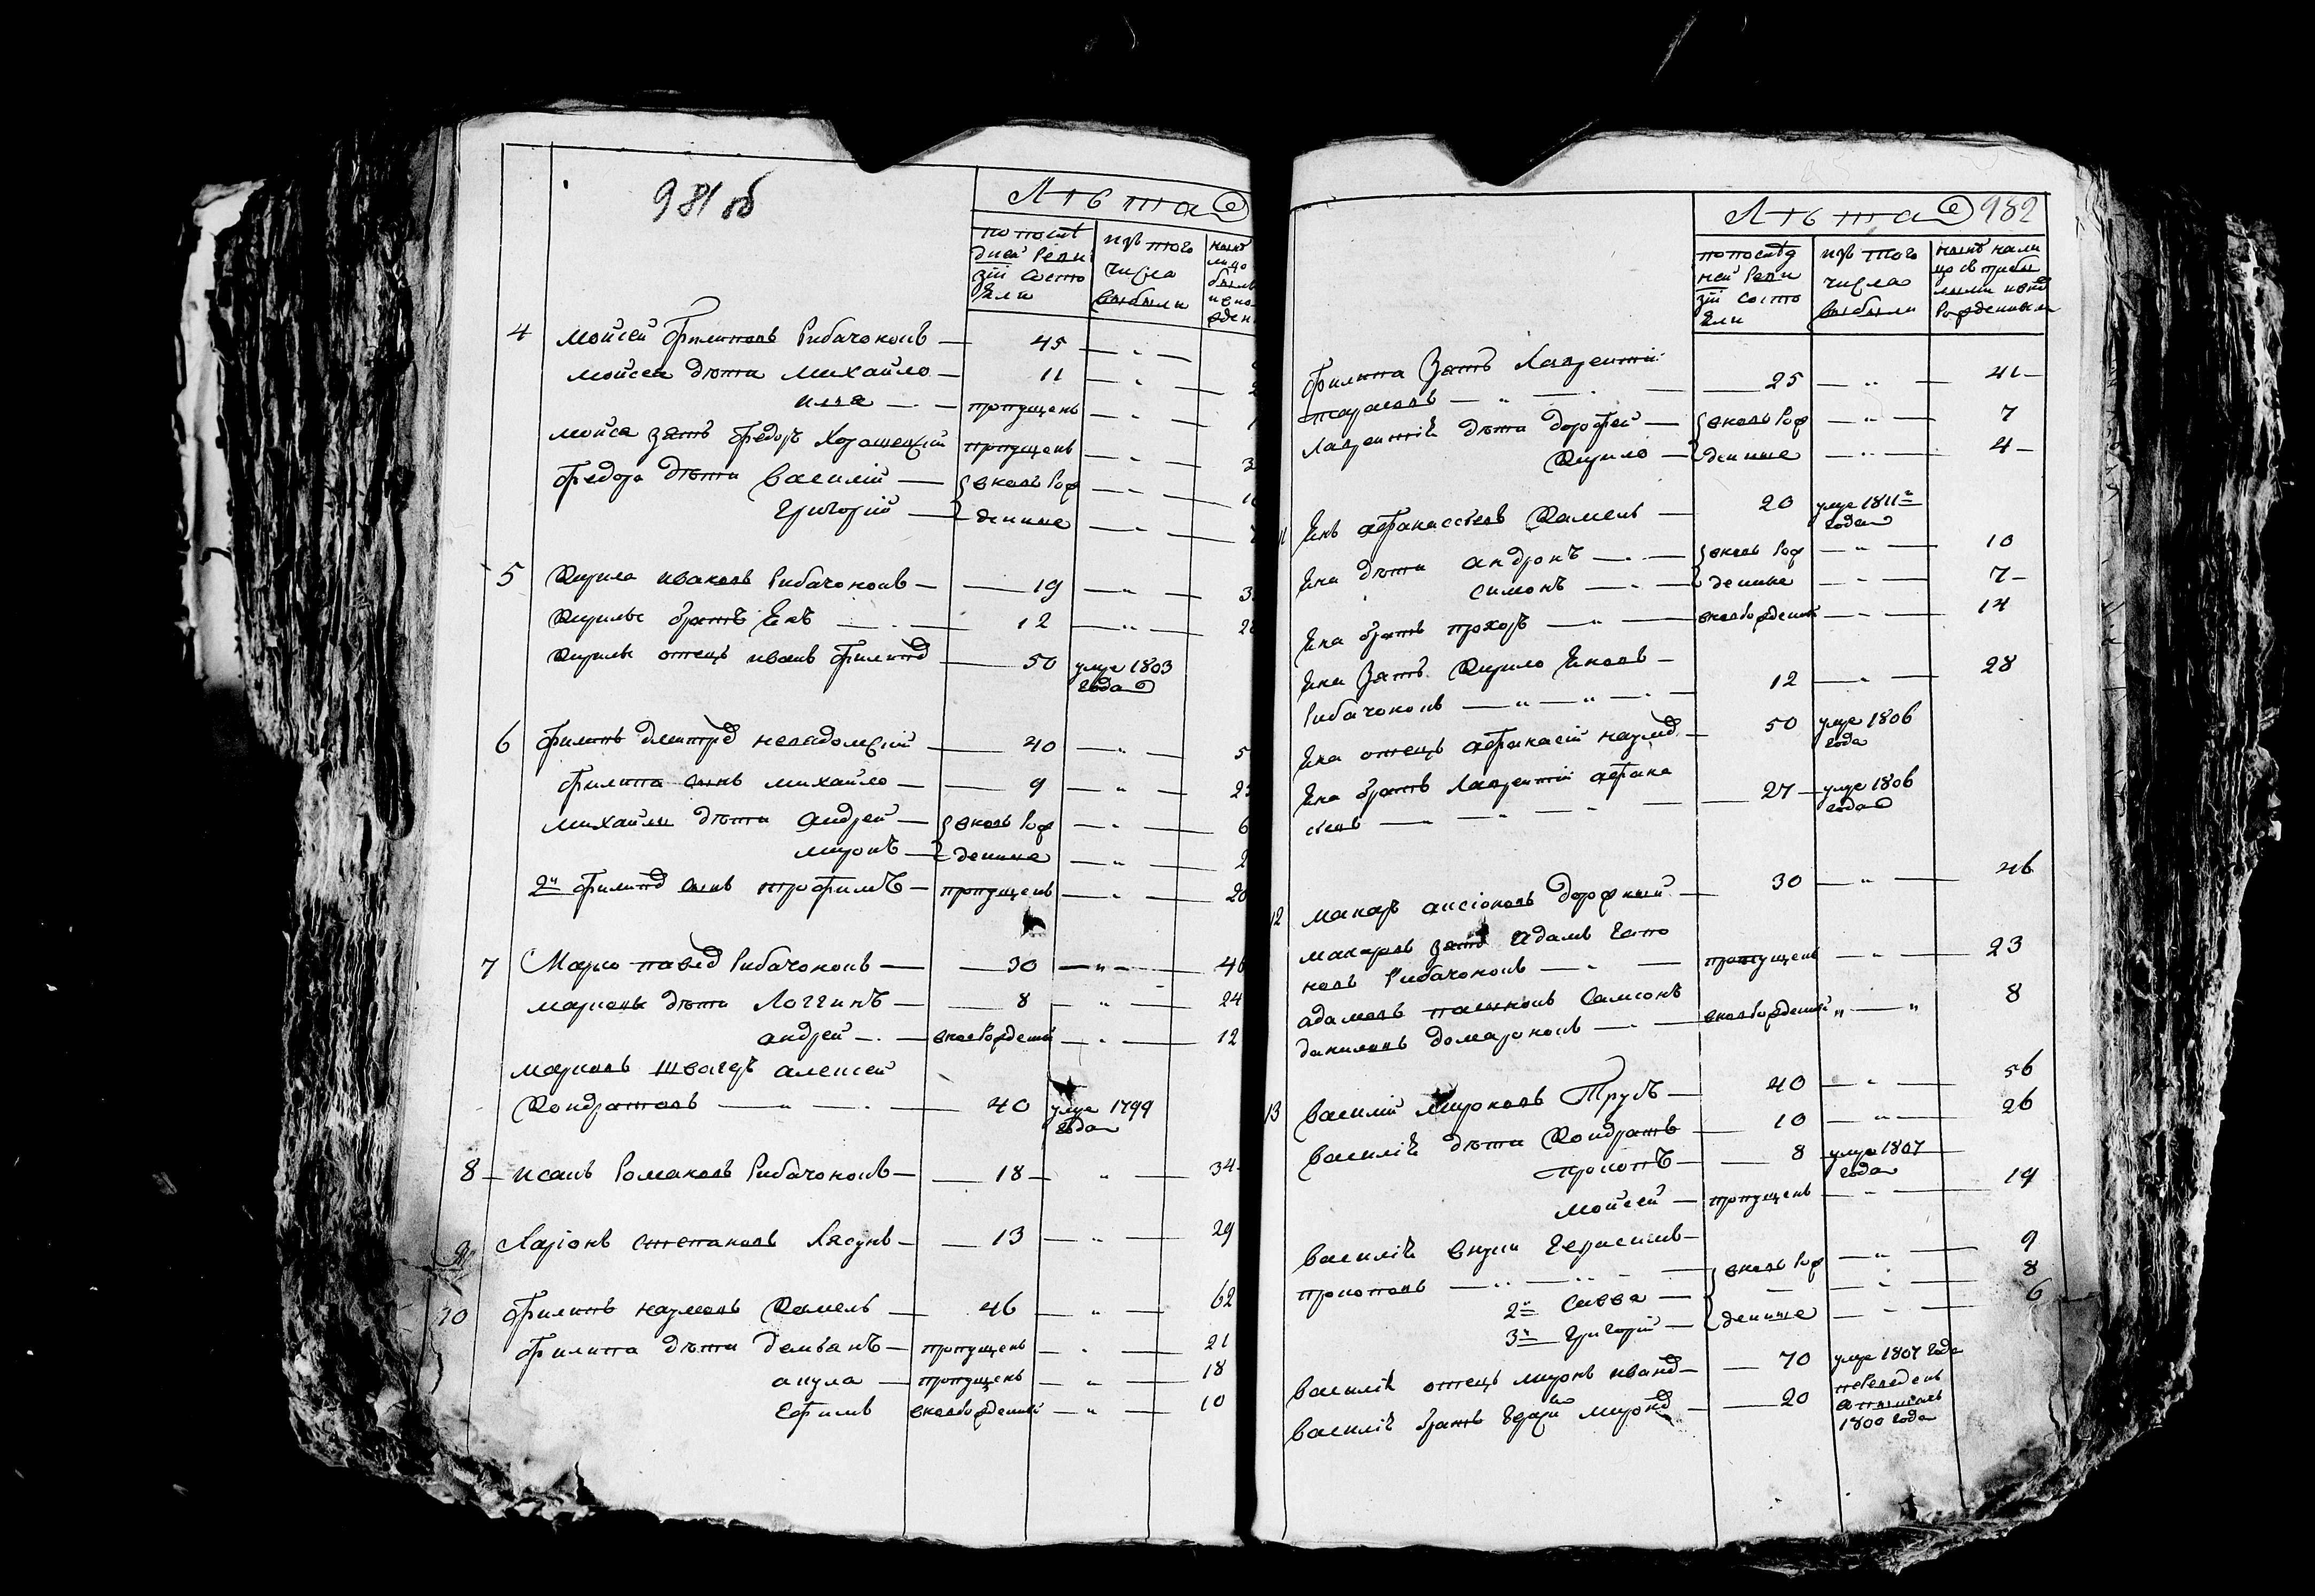 981 об
Лѣта
по послѣ
дней Реви
зіи состо
яли
изъ того
числа
выбыли
4 Мойсей Филиповъ Рибачоковъ — 45 — " —
Мойсея дѣти Михайло — 11 — " —
Илья — пропущенъ — " —
Мойсея зять Федоръ Хорошевскій пропущенъ — " —
Федора дѣти Василій — вновь рож — " —
Григорій — денные — " —
5 Кирило Ивановъ Рибачоковъ — 19 — " —
Кирилы братъ Янъ — 12 — " —
Кирилы отецъ Иванъ Филипо — 50 умре 1803
года
6 Филипъ Дмитро неведомскій — 40 — " —
Филипа сынъ Михайло — 9 — " —
Михайлы дѣти Андрей — вновь рож — " —
Миронъ — денные — " —
2й Филипо сынъ Трофимъ — пропущенъ — " — 20
7 Марко Павло Рибачоковъ — 30 — " — 46
Марковы дѣти Логгинъ — 8 — " — 24
Андрей — вновьрожденный — " — 12
Марковъ швагеръ Алексей
Кондратовъ — " — 40 умре 1799
года
8 Исакъ Романовъ Рибачоковъ — 18 — " — 34
9 Ларіонъ Степановъ Лясунъ — 13 — " — 29
10 Филипъ Наумовъ Камель — 46 — " — 62
Филипа дѣти Демьянъ — пропущенъ — " — 21
Акула — пропущенъ — " — 18
Ефимъ вновьрожденный — " — 10
Лѣта 982
по послѣд
ней Реви
зіи состо
яли
изъ того
числа
выбыли
нынѣ нали
цо съ прибы
лыми и внов
рожденными
Филипа зять Лаврентій
Тарасовъ — " — 25 — " — 41
Лаврентія дѣти Дорофей — вновь рож — " — 7
Кирило — денные — " — 4
11 Янъ Афанассьевъ Камель — 20 умре 1811го
года
Яна дѣти Андронъ — вновь рож — " — 10
Симонъ — денные — " — 7
Яна братъ Прохоръ — " — вновьрожденный — " — 14
Яна зять Кирило Яковъ —
Рибачоковъ — " — " — 12 — " — 28
Яна отецъ Афанасій Наумо — 50 умре 1806
года
Яна братъ Лаврентій Афана
сьевъ — " — " — 27 — умре 1806
года
12 Макаръ Аксіоновъ Дорожный — 30 — " — 46
Макаровъ зять Адамъ Гапо
новъ Рибачоковъ — " — пропущенъ — " — 23
Адамовъ пасынокъ Самсонъ
Даниловъ Домарковъ — " — вновьрожденный " — " 8
13 Василій Мироновъ Трусъ — 40 — " — 56
Василія дѣти Кондратъ — 10 — " — 26
Прокопъ — 8 умре 1807
года
Мойсей — пропущенъ — " — 19
Василія внуки Герасимъ —
Прокоповъ — " — вновь рож — " — 9
2й Савва — — " — 8
3й Григорій — денные — " — 6
Василія отецъ Миронъ Ивано — 70 умре 1807 года
Василія братъ Миро — 20 переведенъ
1800 года